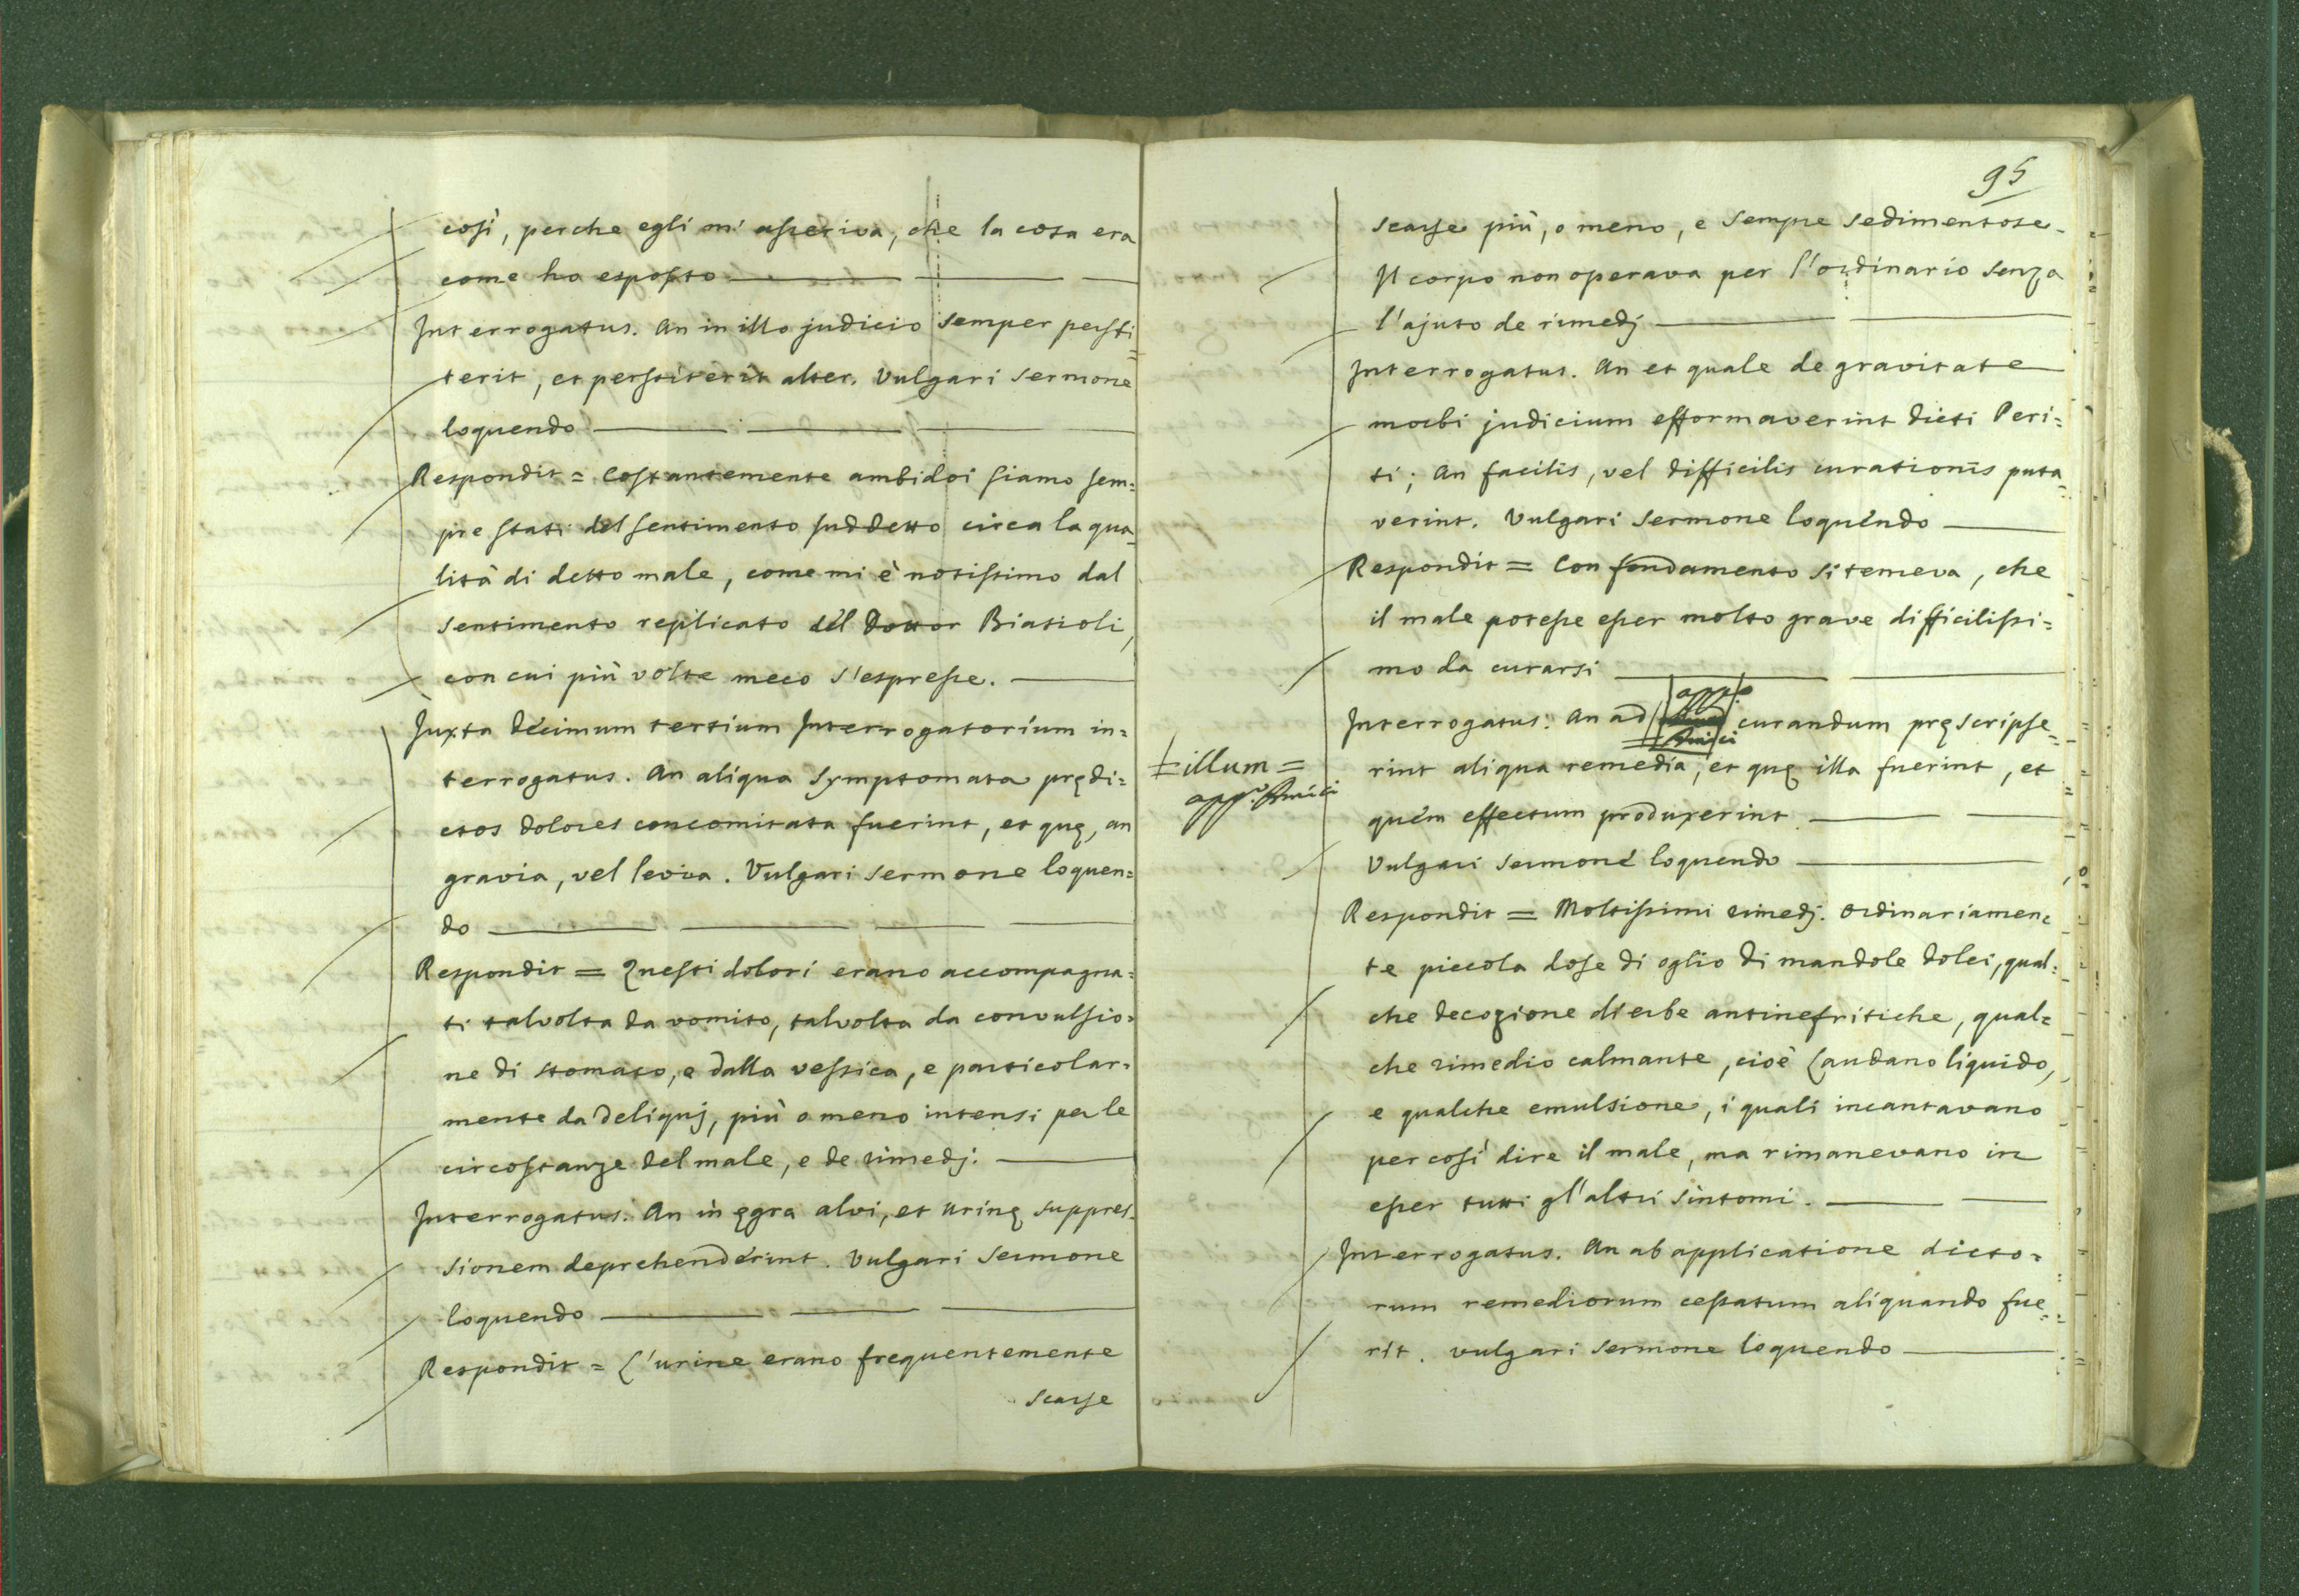 così, perche egli m'asseriva, che la cosa era
come ho esposto
Interrogatus. An in illo judicio semper persti=
terit, et perstiterit alter. Vulgari sermone
loquendo
Respondit = Costantemente ambidoi siamo sem=
pre stati del sentimento suddetto circa la qua=
lità di detto male, come mi è notissimo dal
sentimento replicato del Dottor Biasioli,
con cui più volte meco s'espresse.
Juxta decimum tertium Interrogatorium in=
terrogatus. An aliqua symptomata prędi=
ctos dolores concomitata fuerint, et quę, an
gravia, vel levia. Vulgari sermone loquen=
do
Respondit = Questi dolori erano accompagna=
ti talvolta da vomito, talvolta da convulsio=
ne di stomaco, e dalla vessica, e particolar=
mente da deliquj, più o meno intensi per le
circostanze del male, e de rimedj.
Interrogatus. An in ęgra alvi, et urinę suppres=
sionem deprehenderint. Vulgari sermone
loquendo
Respondit = L'urine erano frequentemente
scarse
95
scarse più, o meno, e sempre sedimentose.
Il corpo non operava per l'ordinario senza
l'ajuto de rimedj
Interrogatus. An et quale de gravitate
morbi judicium efformaverint dicti Peri=
ti; An facilis, vel difficilis curationis puta=
verint. Vulgari sermone loquendo
Respondit = Con fondamento si temeva, che
il male potesse esser molto grave difficilissi=
mo da curarsi
Interrogatus. An ad curandum pręscripse=
= illum =
rint aliqua remedia, et quę illa fuerint, et
quem effectum produxerint.
Vulgari sermone loquendo
Respondit = Moltissimi rimedj. Ordinariamen=
te piccola dose di oglio di mandole dolci, qual=
che decozione di erbe antinefritiche, qual=
che rimedio calmante, cioè Laudano liquido,
e qualche emulsione, i quali incantavano
per così dire il male, ma rimanevano in
esser tutti gl'altri sintomi.
Interrogatus. An ab applicatione dicto=
rum remediorum cessatum aliquando fue=
rit. vulgari sermone loquendo